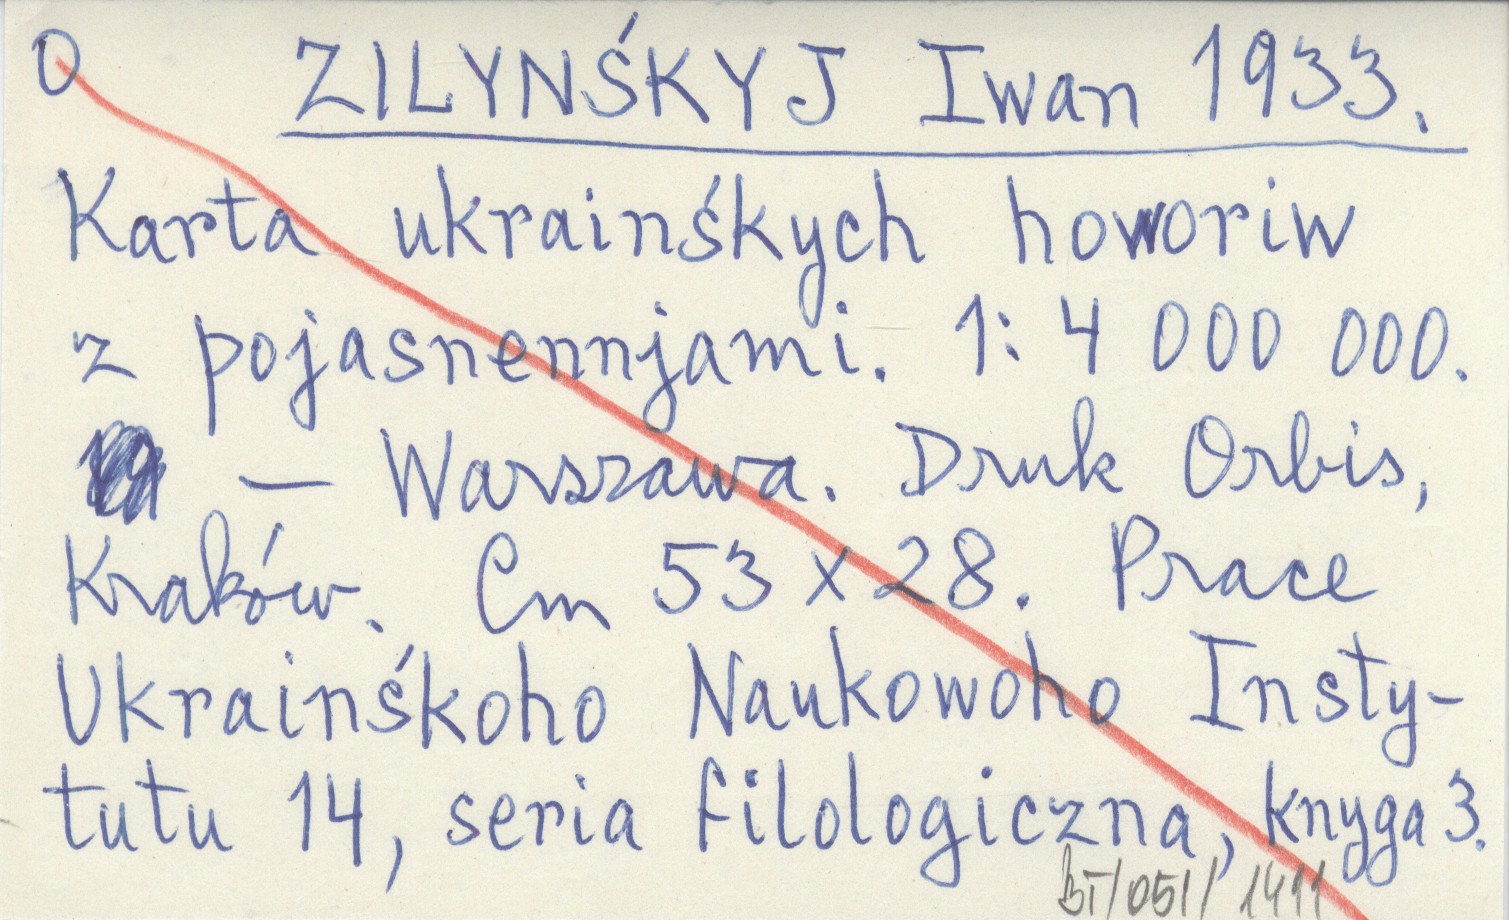 O ZILYNŚKYJ Iwan 1933.
Karta ukrainśkych howoriw
z pojasnennjami. 1: 4 000 000.
— Warszawa. Druk Orbis,
Kraków. Cm 53 x 28. Prace
Ukrainśkoho Naukowoho Insty-
tutu 14, seria filologiczna, knyga 3.
BT/051/1411